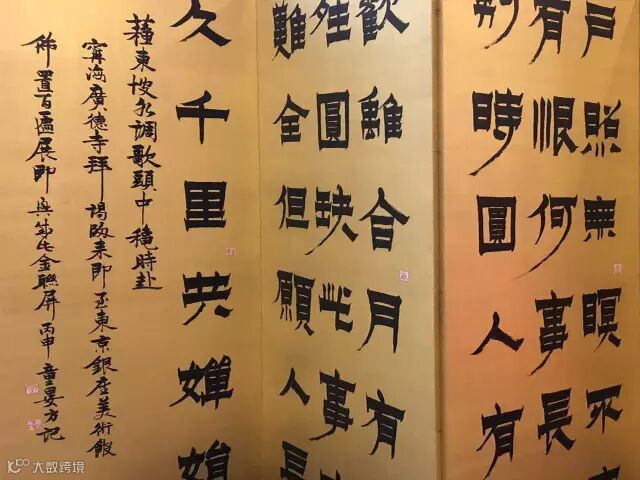 戶照無瞑不
有恨何事長
時圓人有
歡離合月有
圓缺此事
難全但願人長
久千里共嬋娟
蘓東坡水調歌頭中穐時赴
寧海廣德寺拜謁来即東京銀座美術館
佛置百區展即與金聯屏丙申童晏方记
大数跨境